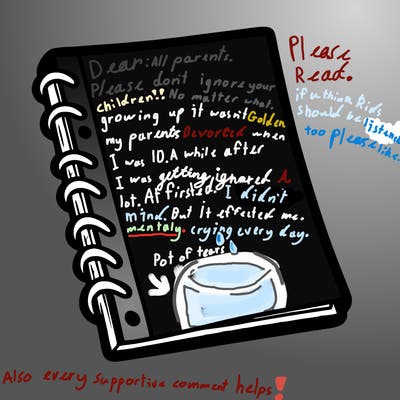 Dear: All parents.
Please don't ignore your
children!! No matter what.
growing up it wasn't Golden
my parents Devorced when
I was 10. A while after
I was getting ignored A
lot. At first I didn't
mind. But it effected me.
mentaly. crying every day.
Pot of tears
Please
Read.
if u think kids
should be listened
too please like
Also every supportive comment helps!